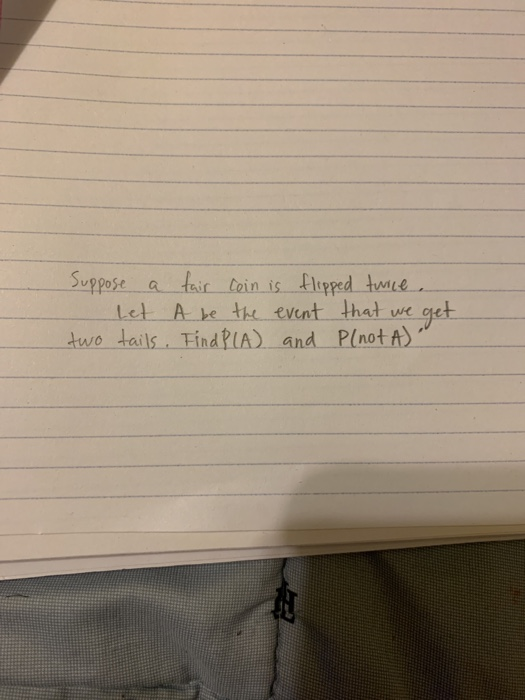 Suppose a fair coin is flipped twice.
Let A be the event that we get
two tails. Find P(A) and P(not A)